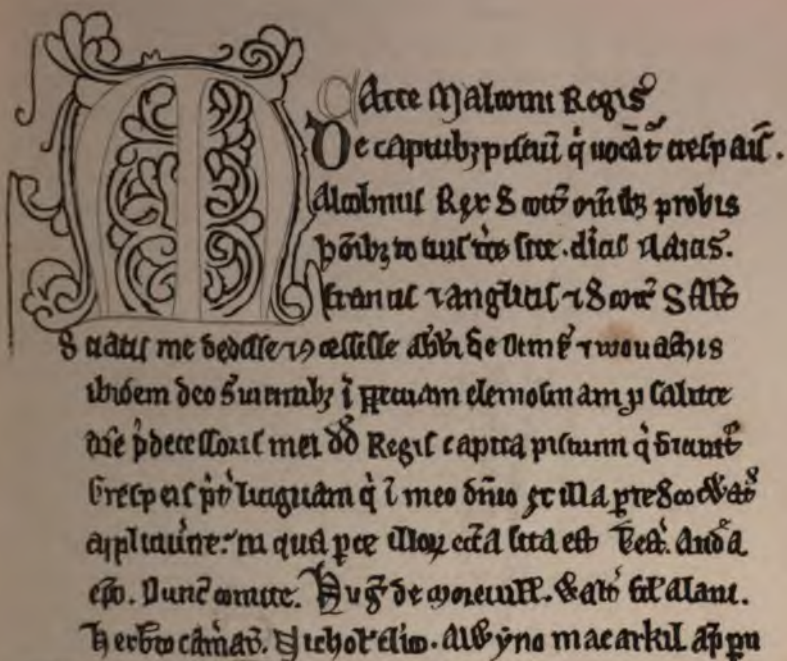 Carte Malcomi Regis
De capitib; pisciū q̇ uocāt̾ crespais.
Malcolmus Rex Scott̾ om̄ib; probis
hōib; toti us t̾re sue. cl̾icis ⁊ laicis.
francis ⁊ anglicis ⁊ Scott̾ Salt̄
Sciatis me dedisse ⁊ ꝯcessisse abb̄i de Dumf̾ ⁊ monachis
ibidem deo s̾uientib; ī ꝑpetuam elemosinam ꝓ salute
aīe p̄decessoris mei dd̄ Regis capita piscium q̇ dicunt̾
Crespeis p̄t̾ linguam q̇ ī meo dn̄io ex illa ꝑte Scottwat̾
applicau̾int. in qua ꝑte illoꝝ eccl̄a sita est Test̾. Andr̾a
ep̄o. Dunec̄ comite. Hug̾ de moreuill. Walt̾ fil̾ Alani.
Herb̾to cām̾ar̾. Nichol̾ cl̾ico. Alfyno mac arkil ap̄